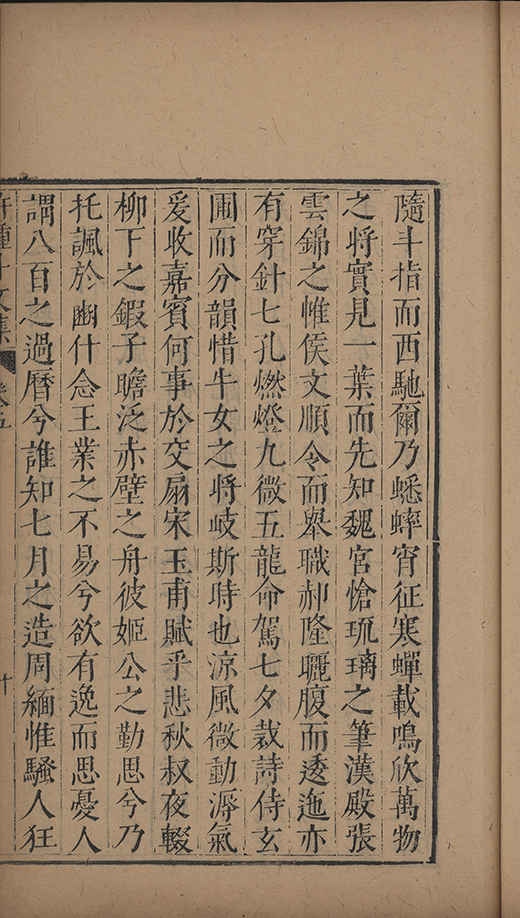 隨斗指而西馳爾乃蟋蟀宵征寒蟬載鳴欣萬物
之將實見一葉而先知魏宮愴琉璃之筆漢殿張
雲錦之帷侯文順令而舉職郝隆曬腹而逶迤亦
有穿針七孔燃燈九微五龍命駕七夕裁詩侍玄
圃而分韻惜牛女之將岐斯時也涼風微動溽氣
爰收嘉賓何事於交扇宋玉甫賦乎悲秋叔夜輟
柳下之鍛子瞻泛赤壁之舟彼姬公之勤思兮乃
托諷於豳什念王業之不易兮欲有逸而思憂人
謂八百之過曆兮誰知七月之造周緬惟騷人狂
十文集
十